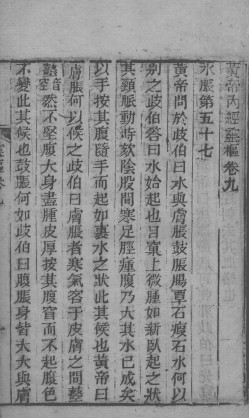 黃帝內經靈樞卷九
水脹第五十七
黃帝問於歧伯曰水與膚脹鼓脹腸覃石瘕石水何以
別之歧伯答曰水始起也目窠上微腫如新臥起之狀
其頸脈動時欬陰股間寒足脛瘇腹乃大其水已成矣
以手按其腹隨手而起如裹水之狀此其候也黃帝曰
膚脹何以候之歧伯曰膚脹者寒氣客于皮膚之間
然不堅腹大身盡腫皮厚按其腹窅而不起腹色
不變此其候也鼓脹何如歧伯曰腹脹身皆大大與膚